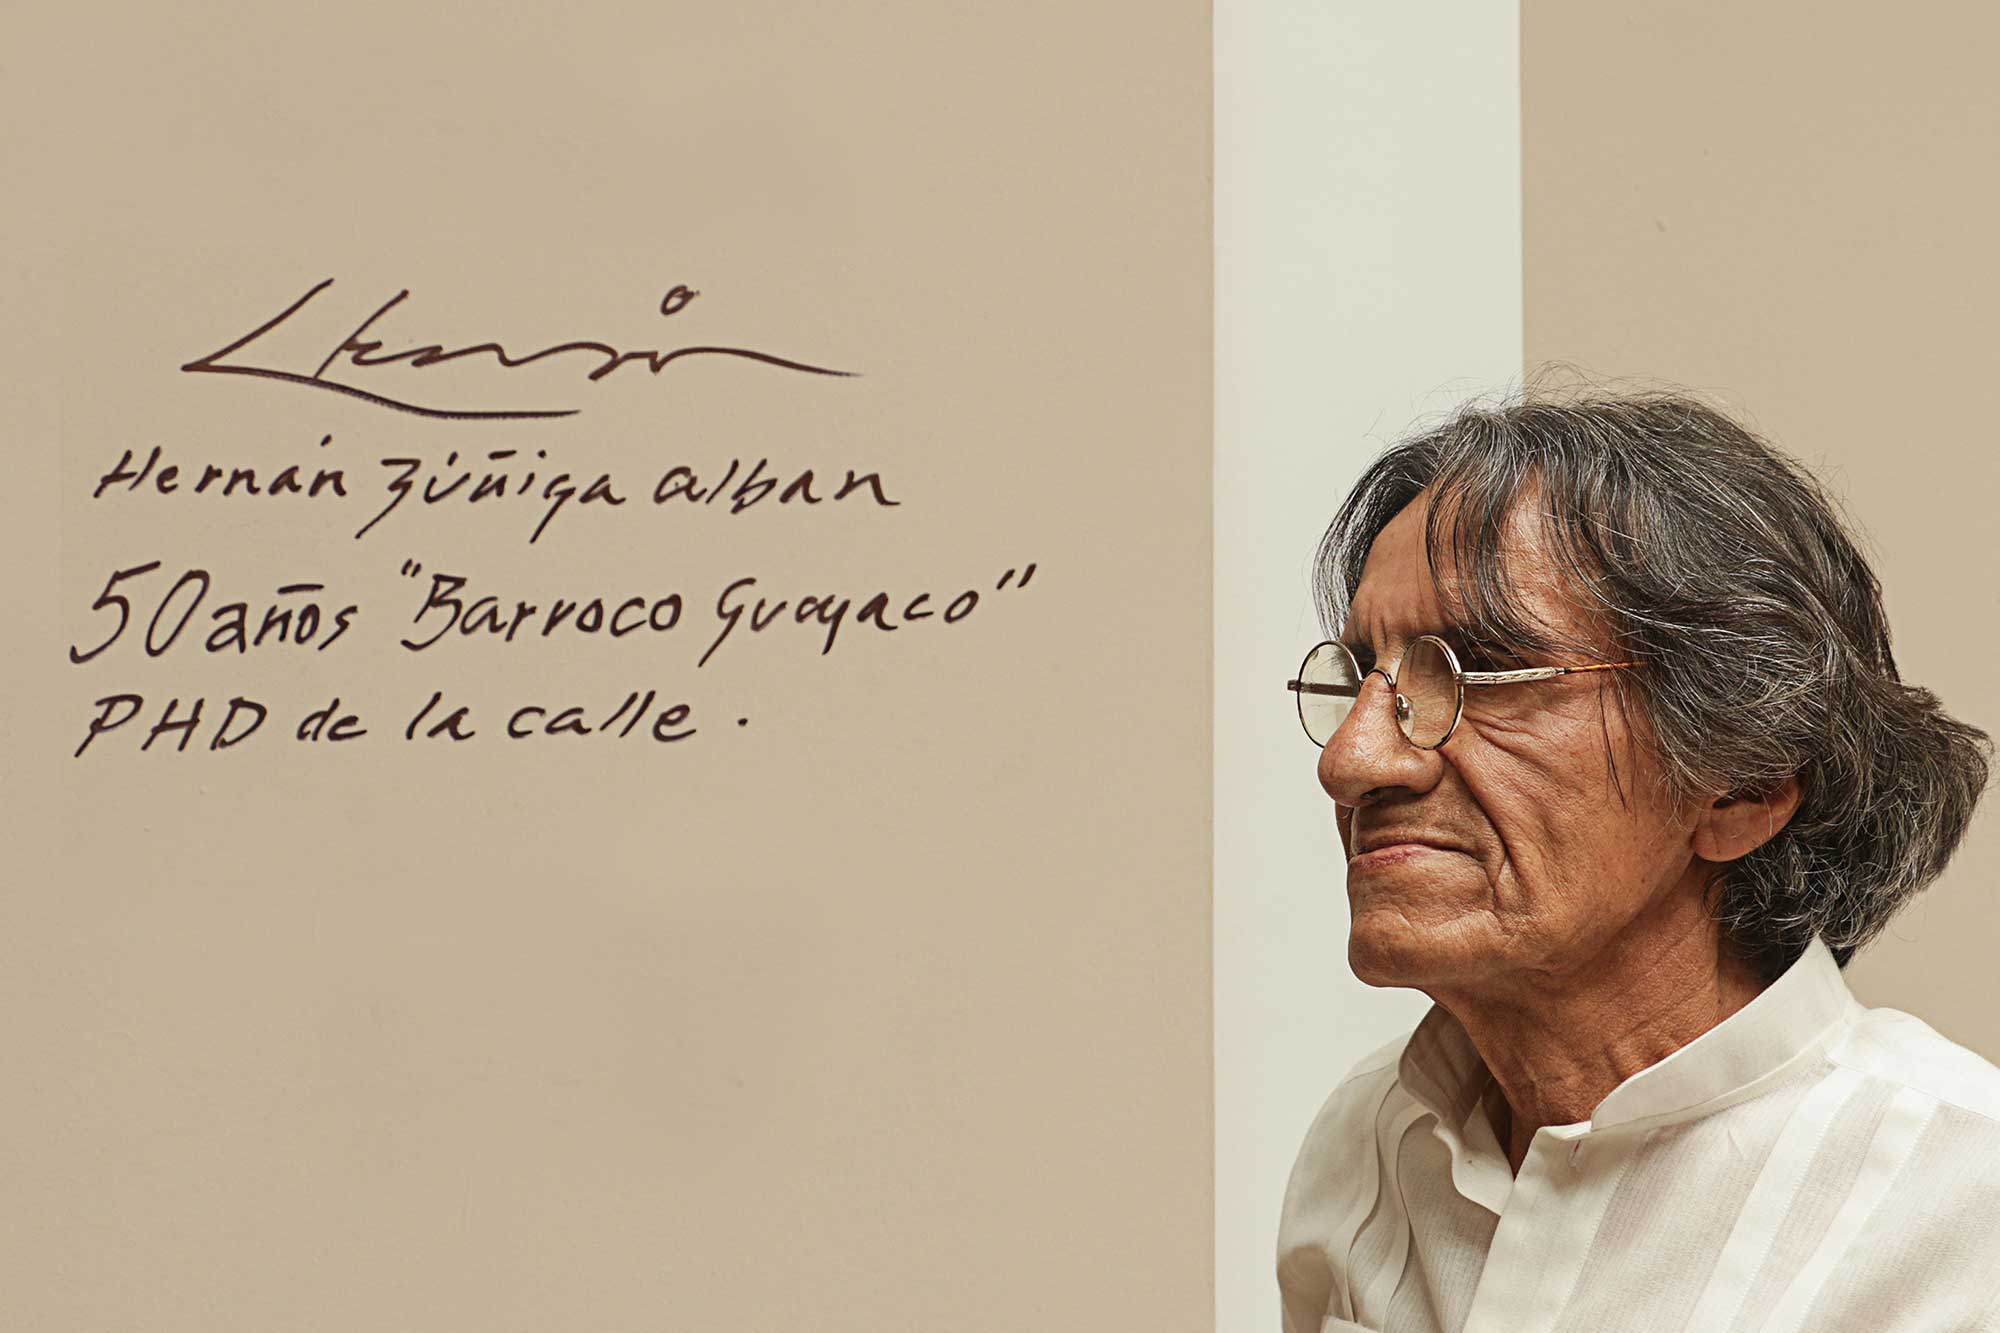 Hernán
Hernán Zúñiga alban
50 años "Barroco Guayaco"
PHD de la calle.